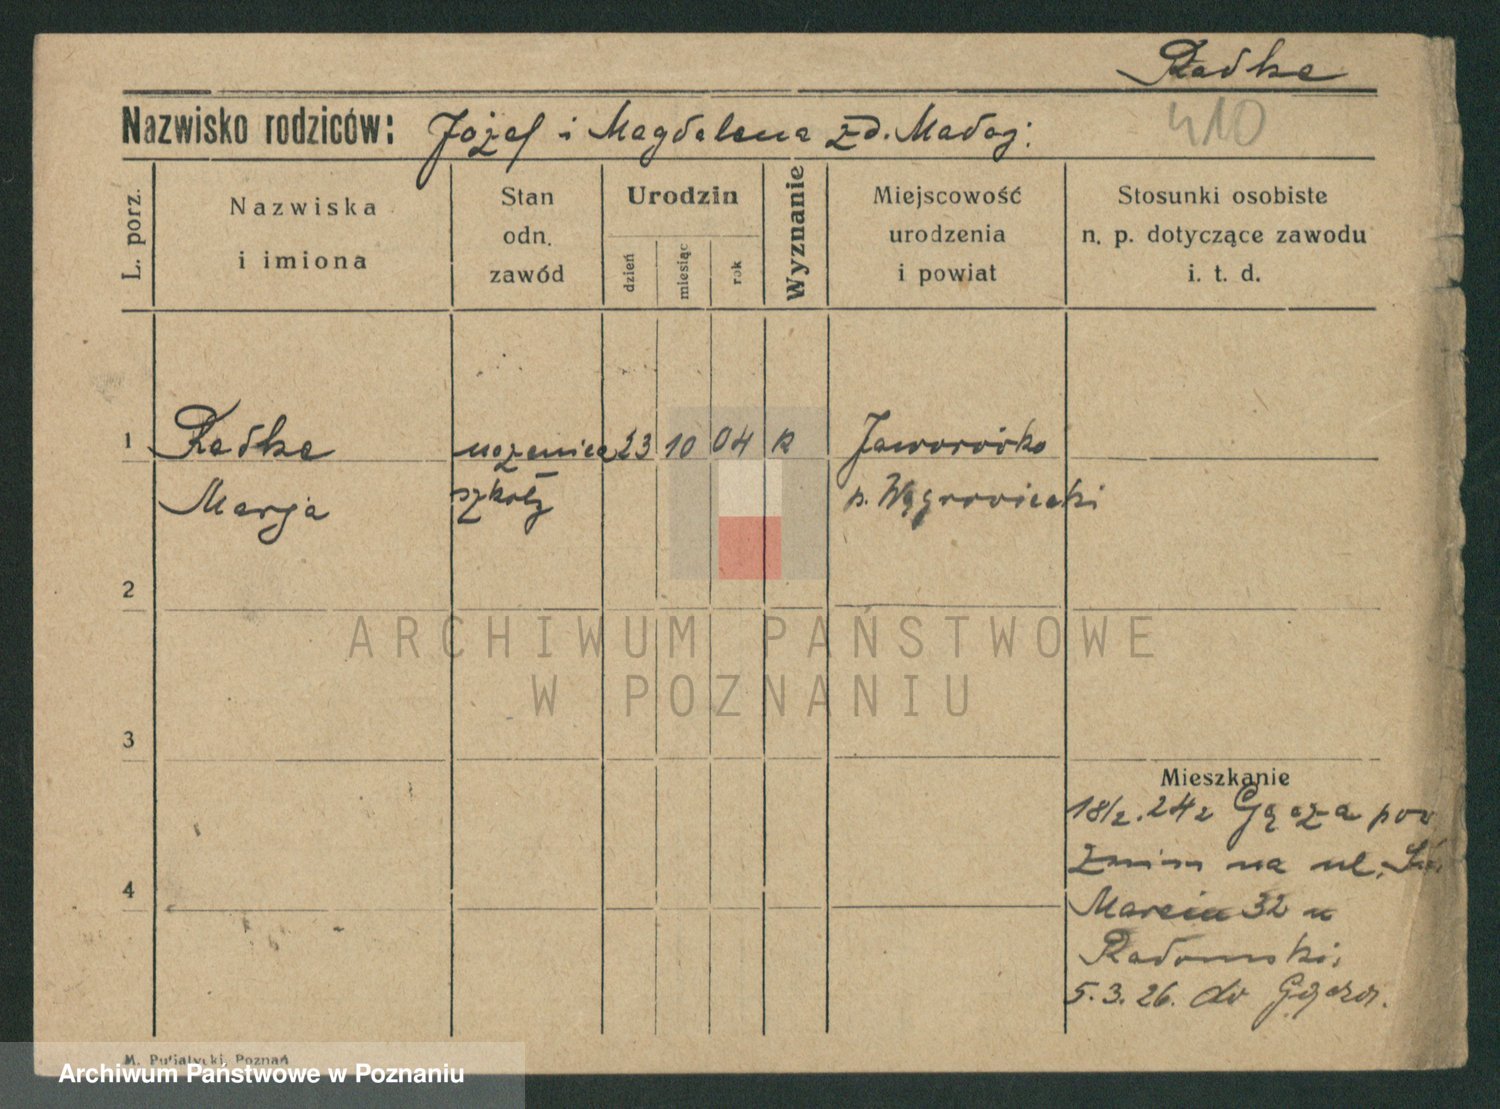 Radke
410
Nazwisko rodziców: Józef i Magdalena zd. Madaj.
L. porz.
Nazwiska
i imiona
Stan
odn.
zawód
Urodzin
dzień
miesiąc
rok
Wyznanie
Miejscowość
urodzenia
i powiat
Stosunki osobiste
n. p. dotyczące zawodu
i. t. d.
1 Radke uczenica 23 10 04 k Jaworówko
Marja szkoły p. Wągrowiecki
2
3
4
Mieszkanie
18/2. 24 z Gącza pow
Żnin na ul. Św.
Marcin 32 u
Radomski,
5.3.26. do Gącza.
ARCHIWUM PAŃSTWOWE
W POZNANIU
M. Putiatycki, Poznań
Archiwum Państwowe w Poznaniu